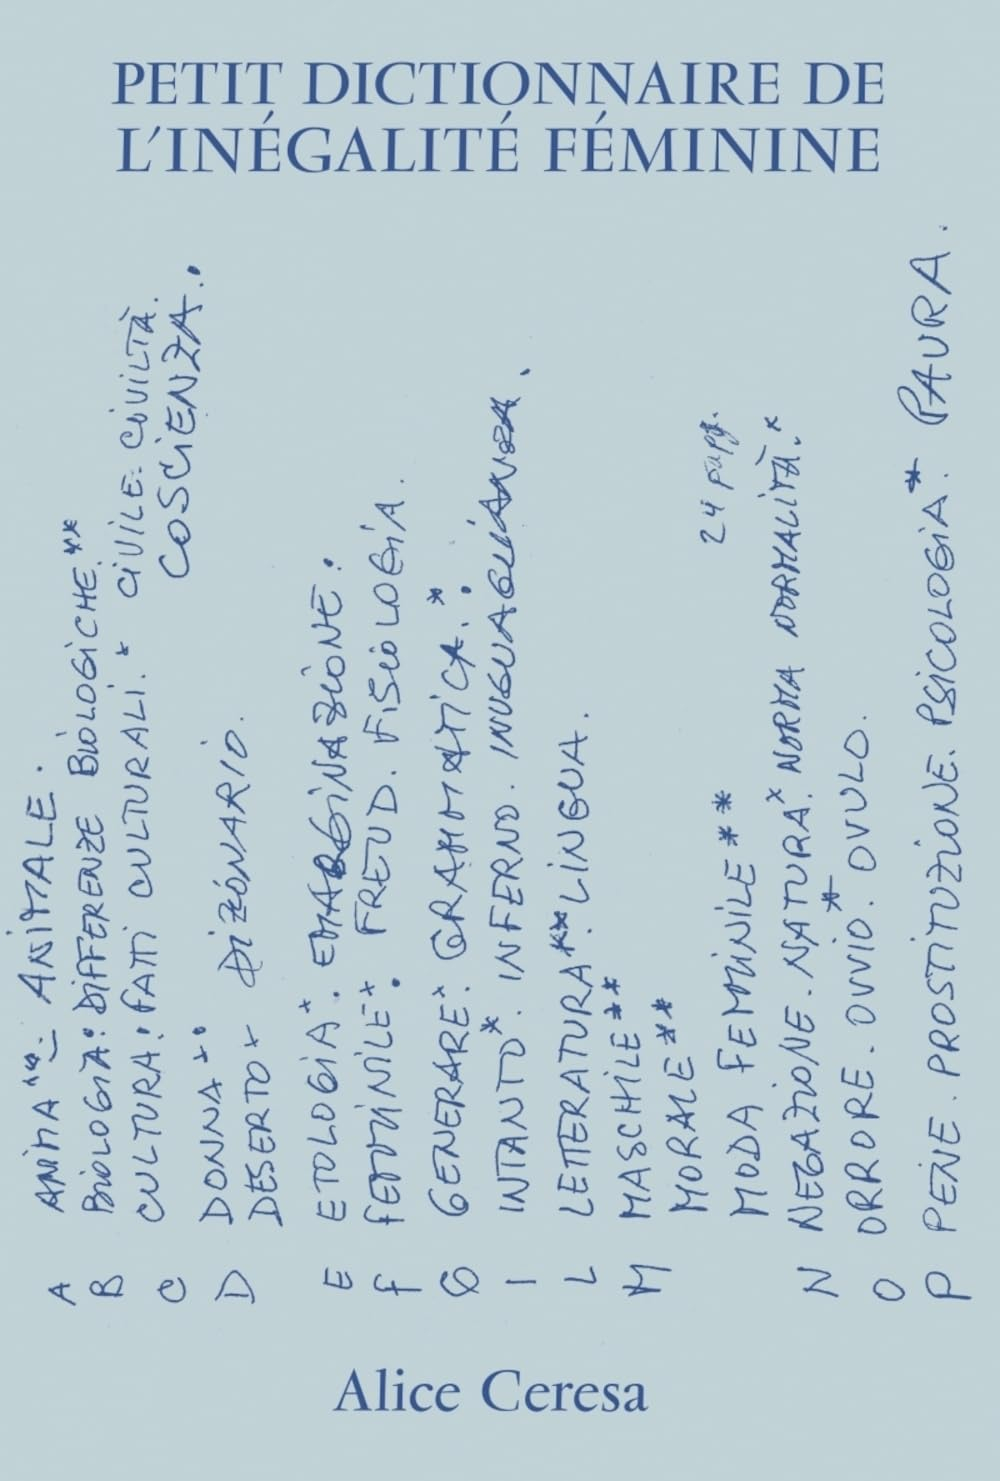 PETIT DICTIONNAIRE DE
L'INÉGALITÉ FÉMININE
A ANIMA**. ANIMALE.
B BIOLOGIA: DIFFERENZE BIOLOGICHE.**
C CULTURA: FATTI CULTURALI.* CIVILE. CIVILTÀ.
COSCIENZA.
D DONNA**
DESERTO+ DIZIONARIO.
E ETOLOGIA+. EMARGINAZIONE.
F FEMMINILE+. FREUD. FISIOLOGIA.
G GENERARE+. GRAMMATICA.*
I INTANTO*. INFERNO. INUGUAGLIANZA.
L LETTERATURA**. LINGUA.
M MASCHILE**
MORALE**
24 pagg.
MODA FEMMINILE**
N NEGAZIONE. NATURA.x NORMA NORMALITÀ.x
O ORRORE. OVVIO.* OVULO.
P PENE. PROSTITUZIONE. PSICOLOGIA.* PAURA.
Alice Ceresa